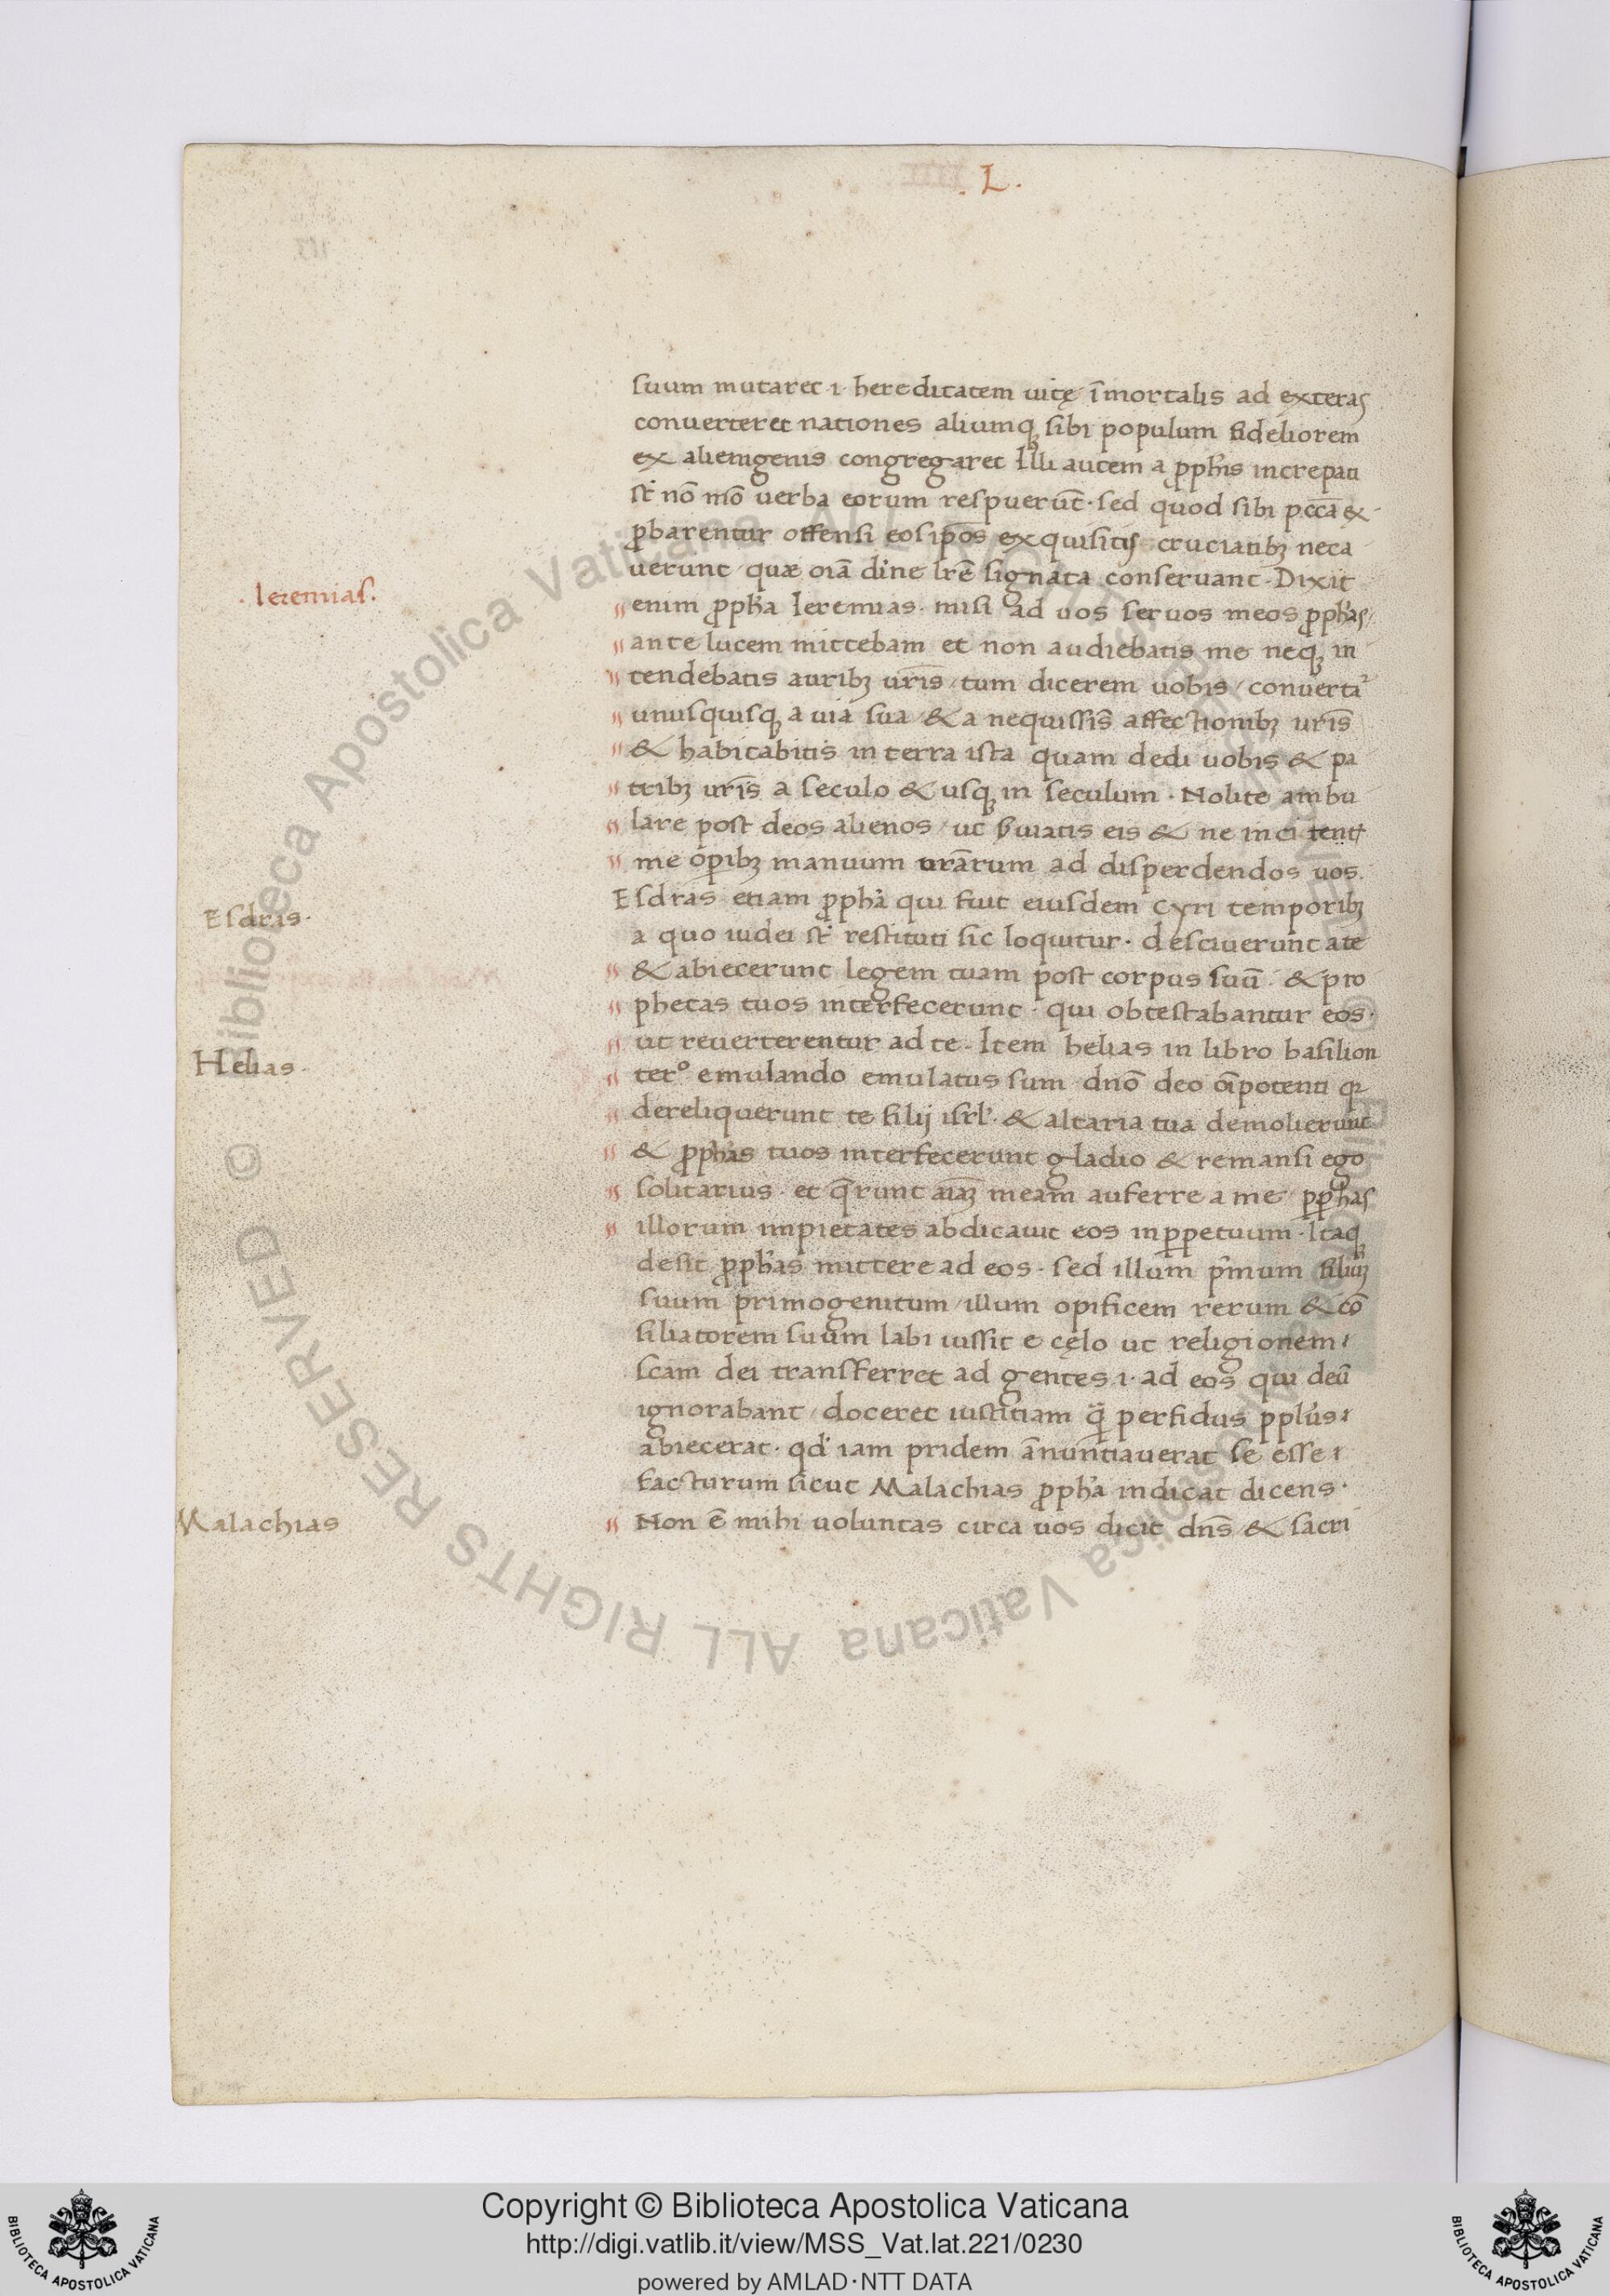 . L .
suum mutaret .i. hereditatem uitę īmortalis ad exteras
conuerteret nationes aliumq; sibi populum fideliorem
ex alienigenis congregaret Illi autem a ꝓph̄is increpati
st̄ nō mō uerba eorum respuerūt · sed quod sibi pccā ex
ꝓbarentur offensi eos ip̄os exquisitis cruciatib; neca
uerunt quæ oīa diuīne lr̄e signata conseruant · Dixit
. Ieremias .
enim ꝓph̄a Ieremias · misi ad uos seruos meos ꝓph̄as /
ante lucem mittebam et non audiebatis me neq; in
tendebatis aurib; ur̄is / tum dicerem uobis / conuertat̄
unusquisq; a uia sua & a nequissīs affectionib; ur̄is
& habitabitis in terra ista quam dedi uobis & pa
trib; ur̄is a seculo & usq; in seculum · Nolite ambu
lare post deos alienos / ut s̄uiatis eis & ne incitent
me oꝑib; manuum ur̄arum ad disperdendos uos.
Esdras ·
Esdras etiam ꝓph̄a qui fuit eiusdem Cyri temporib;
a quo iudei st̄ restituti sic loquitur · desciuerunt a te
& abiecerunt legem tuam post corpus suū · & pro
phetas tuos interfecerunt · qui obtestabantur eos ·
Helias ·
ut reuerterentur ad te · Item helias in libro basilion
terº emulando emulatus sum dn̄o deo oīpotenti qꝛ
dereliquerunt te filij isrl̄ · & altaria tua demolierunt
& ꝓph̄as tuos interfecerunt gladio & remansi ego
solitarius · et q̄runt aīaꝫ meam auferre a me ꝑph̄as
illorum impietates abdicauit eos inꝑpetuum · Itaq;
desiit ꝓph̄as mittere ad eos · sed illum p̄mum filiuꝫ
suum primogenitum / illum opificem rerum & cō
siliatorem suum labi iussit e cęlo ut religionem
scam dei transferret ad gentes .i. ad eos qui deū
ignorabant / doceret iustitiam quā perfidus pplu̇s
abiecerat · qd̄ iam pridem ānuntiauerat se esse
facturum sicut Malachias ꝓph̄a indicat dicens ·
Malachias
Non ē mihi uoluntas circa uos dicit dn̄s & sacri
© Biblioteca Apostolica Vaticana ALL RIGHTS RESERVED
© Biblioteca Apostolica Vaticana ALL RIGHTS RESERVED
BIBLIOTECA APOSTOLICA VATICANA
Copyright © Biblioteca Apostolica Vaticana
http://digi.vatlib.it/view/MSS_Vat.lat.221/0230
powered by AMLAD·NTT DATA
BIBLIOTECA APOSTOLICA VATICANA